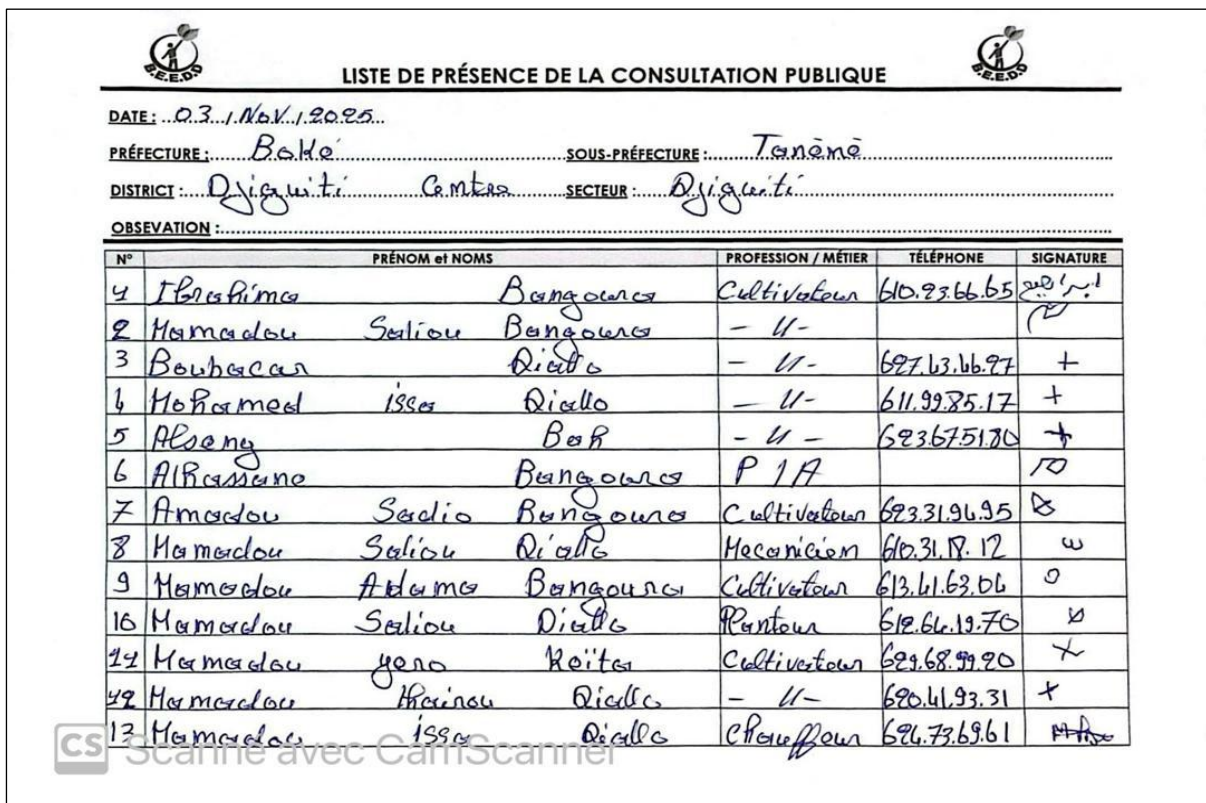 B.E.E.D.D B.E.E.D.D
LISTE DE PRÉSENCE DE LA CONSULTATION PUBLIQUE
DATE : 03 / Nov / 2025
PRÉFECTURE : Boké SOUS-PRÉFECTURE : Tanènè
DISTRICT : Djiguiti Centre SECTEUR : Djiguiti
OBSEVATION :
N° PRÉNOM et NOMS PROFESSION / MÉTIER TÉLÉPHONE SIGNATURE
1 Ibrahima Bangoura Cultivateur 610.23.66.65 ابراهيم
2 Mamadou Saliou Bangoura - 11 -
3 Boubacar Diallo - 11 - 627.43.46.27 +
4 Mohamed issa Diallo - 11 - 611.99.85.17 +
5 Alseny Bah - 11 - 623.67.51.80 +
6 Alhassane Bangoura P 1 A
7 Amadou Sadio Bangoura Cultivateur 623.31.94.95
8 Mamadou Saliou Diallo Mecanicien 610.31.18.12
9 Mamadou Adama Bangoura Cultivateur 613.41.63.04
10 Mamadou Saliou Diallo Planteur 612.64.19.70
11 Mamadou yero Keïta Cultivateur 629.68.99.20
12 Mamadou thainou Diallo - 11 - 620.41.93.31 +
13 Mamadou issa Diallo Chauffeur 624.73.69.61
CS Scanné avec CamScanner